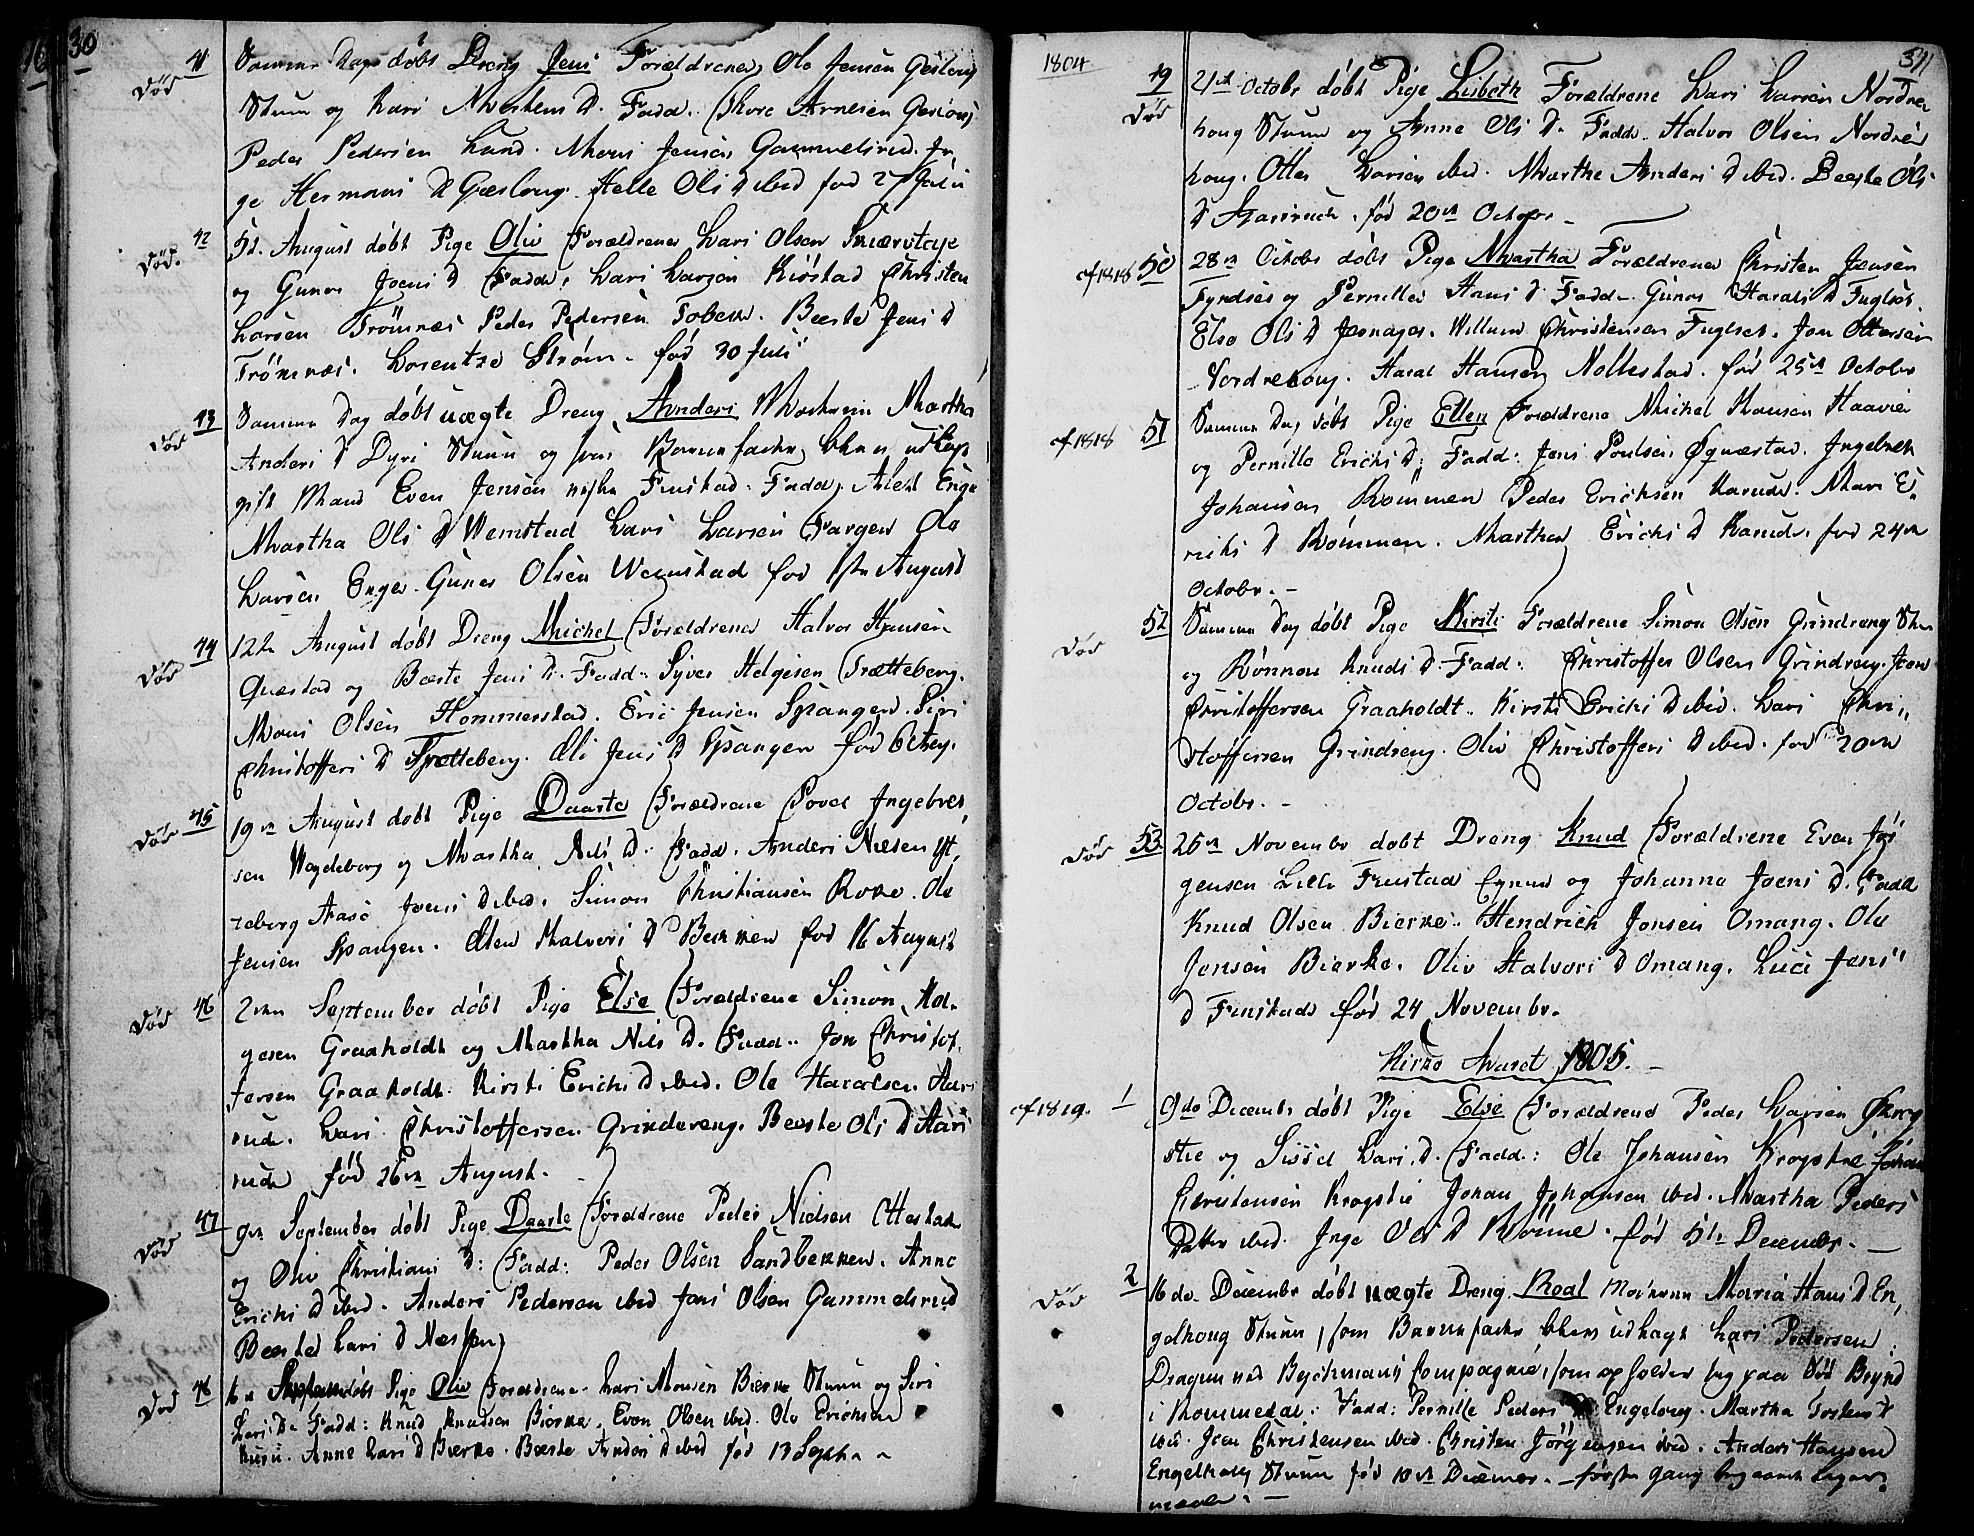 30
41 Samme Dag døbt Dreng Jens Forældrene Ole Jensen Gieslong
død
Stuun og Kari Mortens D. Fadd. Thore Arnesen Geslong
Peder Pedersen Lund. Mons Jensen Gammelsrud. In
ge Hermans D Gieslong. Helle Ols D ibid fød 27 Julii
42 5t. August døbt Pige Oliv Forældrene Lars Olsen
død.
og Guner Joens D Fadd. Lars Larsen Kiøstad Christen
Larsen Trømnæs Peder Pedersen. Beeste Jens D
Trømnæs. Lorentze Strøm. fød 30 Juli
43 Samme Dag døbt uægte Dreng Anders Moderen Martha
død
Anders D Dyri Stuun og som Barnefader blev udlagt
gift Mand Even Jensen Finstad. Fadd. Enge
Martha Ols D Wemstad Lars Larsen Farger Ole
Larsen Enger. Guner Olsen Wemstad fød 1ste August
44 12te August døbt Dreng Michel Forældrene Halvor Hansen
død
Quæstad og Bæste Jens D. Fadd. Syver Helgesen Trætteberg.
Mons Olsen Hommerstad. Eric Jensen Spangen. Siri
Christoffers D Trætteberg. Oli Jens D Spangen fød 6 Aug.
45 19de August døbt Pige Daarte Forældrene Povel Ingebret
død
sen Wegdeberg og Martha Nils D. Fadd. Anders Nilsen
teberg Aase Joens D ibid. Simon Christiansen Ole
Jensen Spangen. Ellen Halvors D Bekken fød 16 August
46 2den September døbt Pige Else Forældrene Simon Hel
død
gesen Graaholdt og Martha Nils D. Fadd. Jon Christof
fersen Graaholdt. Kirsti Erichs D ibid. Ole Haralsen Haas
rude. Lars Christoffersen Grindereng. Beeste Ols D Haas
rude fød 26de August.
47 9de September døbt Pige Daarte Forældrene Peder Nielsen Ottestad
død
og Oliv Christians D: Fadd: Peder Olsen Sandbekken. Anne
Erichs D ibid. Anders Pedersen ibid Jens Olsen Gammelsrud
Beeste Lars D Næsset
48 16de Septem døbt Pige Oliv Forældrene Lars Monsen Bierke Stuun og Siri
død
Lars D Fadd: Knud Knudsen Bierke. Even Olsen ibid. Ole Erichsen
Anne Lars D Bierke. Bæste Anders D ibid fød 13 Septbr
1804
311
49 21de Octobr døbt Pige Lisbeth Forældrene Lars Larsen Nordre
død
houg Stuun og Anne Ols D. Fadd. Halvor Olsen Nordre
houg. Otter Larsen ibid. Marthe Anders D ibid. Beeste Ols
D fød 20de Octobr
cf 1818 50 28de Octobr døbt Pige Martha Forældrene Christen Jensen
og Pernille Hans D. Fadd. Guner Harals D Fuglset.
Else Ols D. Willum Christensen Fuglset. Jon Ottersen
Nordrehoug. Haral Hansen Nollestad. fød 25de Octobr
cf 1818 51 Samme Dag døbt Pige Ellen Forældrene Michel Hansen Haavie
og Pernille Erichs D: Fadd: Jens Poulsen Øquæstad. Ingebret
Johansen Rømmen Peder Erichsen Karude. Mari E
richs D Rømmen. Martha Erichs D Karude. fød 24de
Octobr.
52 Samme Dag døbt Pige Kirsti Forældrene Simon Olsen Grindreng Stuun
død
og Rønnou Knuds D. Fadd: Christoffer Olsen Grindreng. Joen
Christoffersen Graaholdt. Kirsti Erichs D ibid. Lars Chri,,
stoffersen Grindreng. Oliv Christoffers D ibid. fød 20de
Octobr.
53 25de Novembr døbt Dreng Knud Forældrene Even Jør
død
gensen Lille Finstad og Johanne Joens D. Fadd
Knud Olsen Bierke. Hendrich Jonsen Omang. Ole
Jensen Bierke. Oliv Halvors D Omang. Luci Jens
D Finstad fød 24 Novembr.
Kirke Aaret 1805.
cf 1819. 1 9de Decembr døbt Pige Else Forældrene Peder Larsen Krog
stie og Sissel Lars D. Fadd: Ole Johansen Krogstie Johan
Christensen Krogstie Johan Johansen ibid. Martha Peders
Datter ibid. Inge Ols D Rønne. fød 5te Decembr.
2 16de Decembr døbt uægte Dreng Roal Moderen Maria Hans D En,
død
gelhoug Stuun, som Barnefader blev udlagt Lars Pedersen
Dragun ved Bychmans Compagnie, som opholder sig paa
i Rommedal. Fadd: Pernille Peders D Engeloug. Martha Torstens D
ibid. Joen Christensen ibid. Christen Jørgensen ibid. Anders Hansen
Engelhoug Stuun fød 10de Decembr. første gang begaaet Leger
maal.